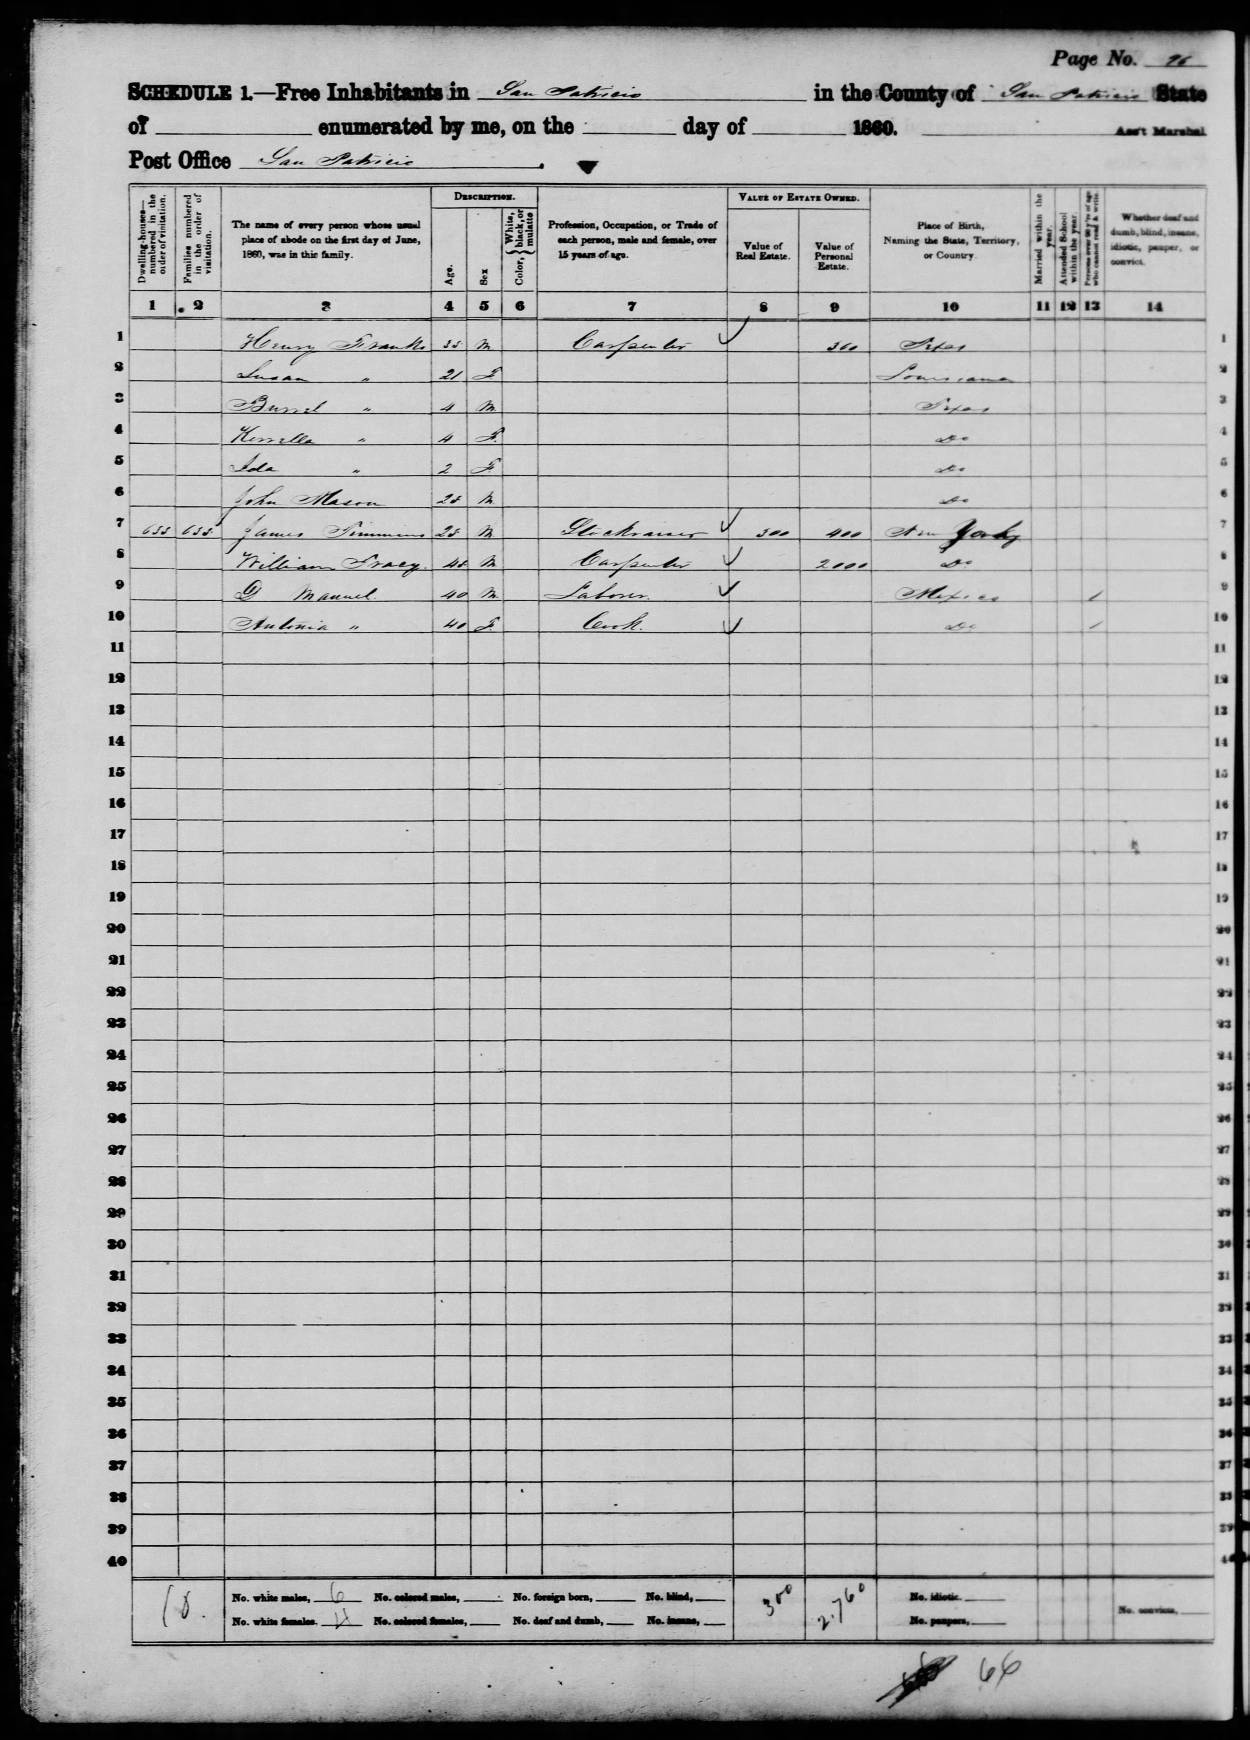 Page No. 96
SCHEDULE 1.—Free Inhabitants in San Patricio in the County of San Patricio State
of enumerated by me, on the day of 1860. Ass't Marshal
Post Office San Patricio.
Dwelling-houses—numbered in the order of visitation. Families numbered in the order of visitation. The name of every person whose usual place of abode on the first day of June, 1860, was in this family. DESCRIPTION. Age. Sex Color, White, black, or mulatto Profession, Occupation, or Trade of each person, male and female, over 15 years of age. VALUE OF ESTATE OWNED. Value of Real Estate. Value of Personal Estate. Place of Birth, Naming the State, Territory, or Country. Married within the year. Attended School within the year. Persons over 20 y'rs of age who cannot read & write. Whether deaf and dumb, blind, insane, idiotic, pauper, or convict.
1 2 3 4 5 6 7 8 9 10 11 12 13 14
1 Henry Franks 35 M Carpenter 360 Texas 1
2 Susan " 21 F Louisiana 2
3 Burrel " 4 M Texas 3
4 " 4 F Do 4
5 Ida " 2 F Do 5
6 John Mason 25 M Do 6
7 655 655 James Timmins 25 M Stockraiser 300 400 New York 7
8 William Tracy 45 M Carpenter 2000 Do 8
9 D Manuel 40 M Laborer Mexico 1 9
10 Antonia " 40 F Cook. Do 1 10
11 11
12 12
13 13
14 14
15 15
16 16
17 17
18 18
19 19
20 20
21 21
22 22
23 23
24 24
25 25
26 26
27 27
28 28
29 29
30 30
31 31
32 32
33 33
34 34
35 35
36 36
37 37
38 38
39 39
40 40
10. No. white males, 6 No. colored males, No. foreign born, No. blind, 300 2.760 No. idiotic.
No. white females. 4 No. colored females, No. deaf and dumb, No. insane, No. paupers, No. convicts,
66